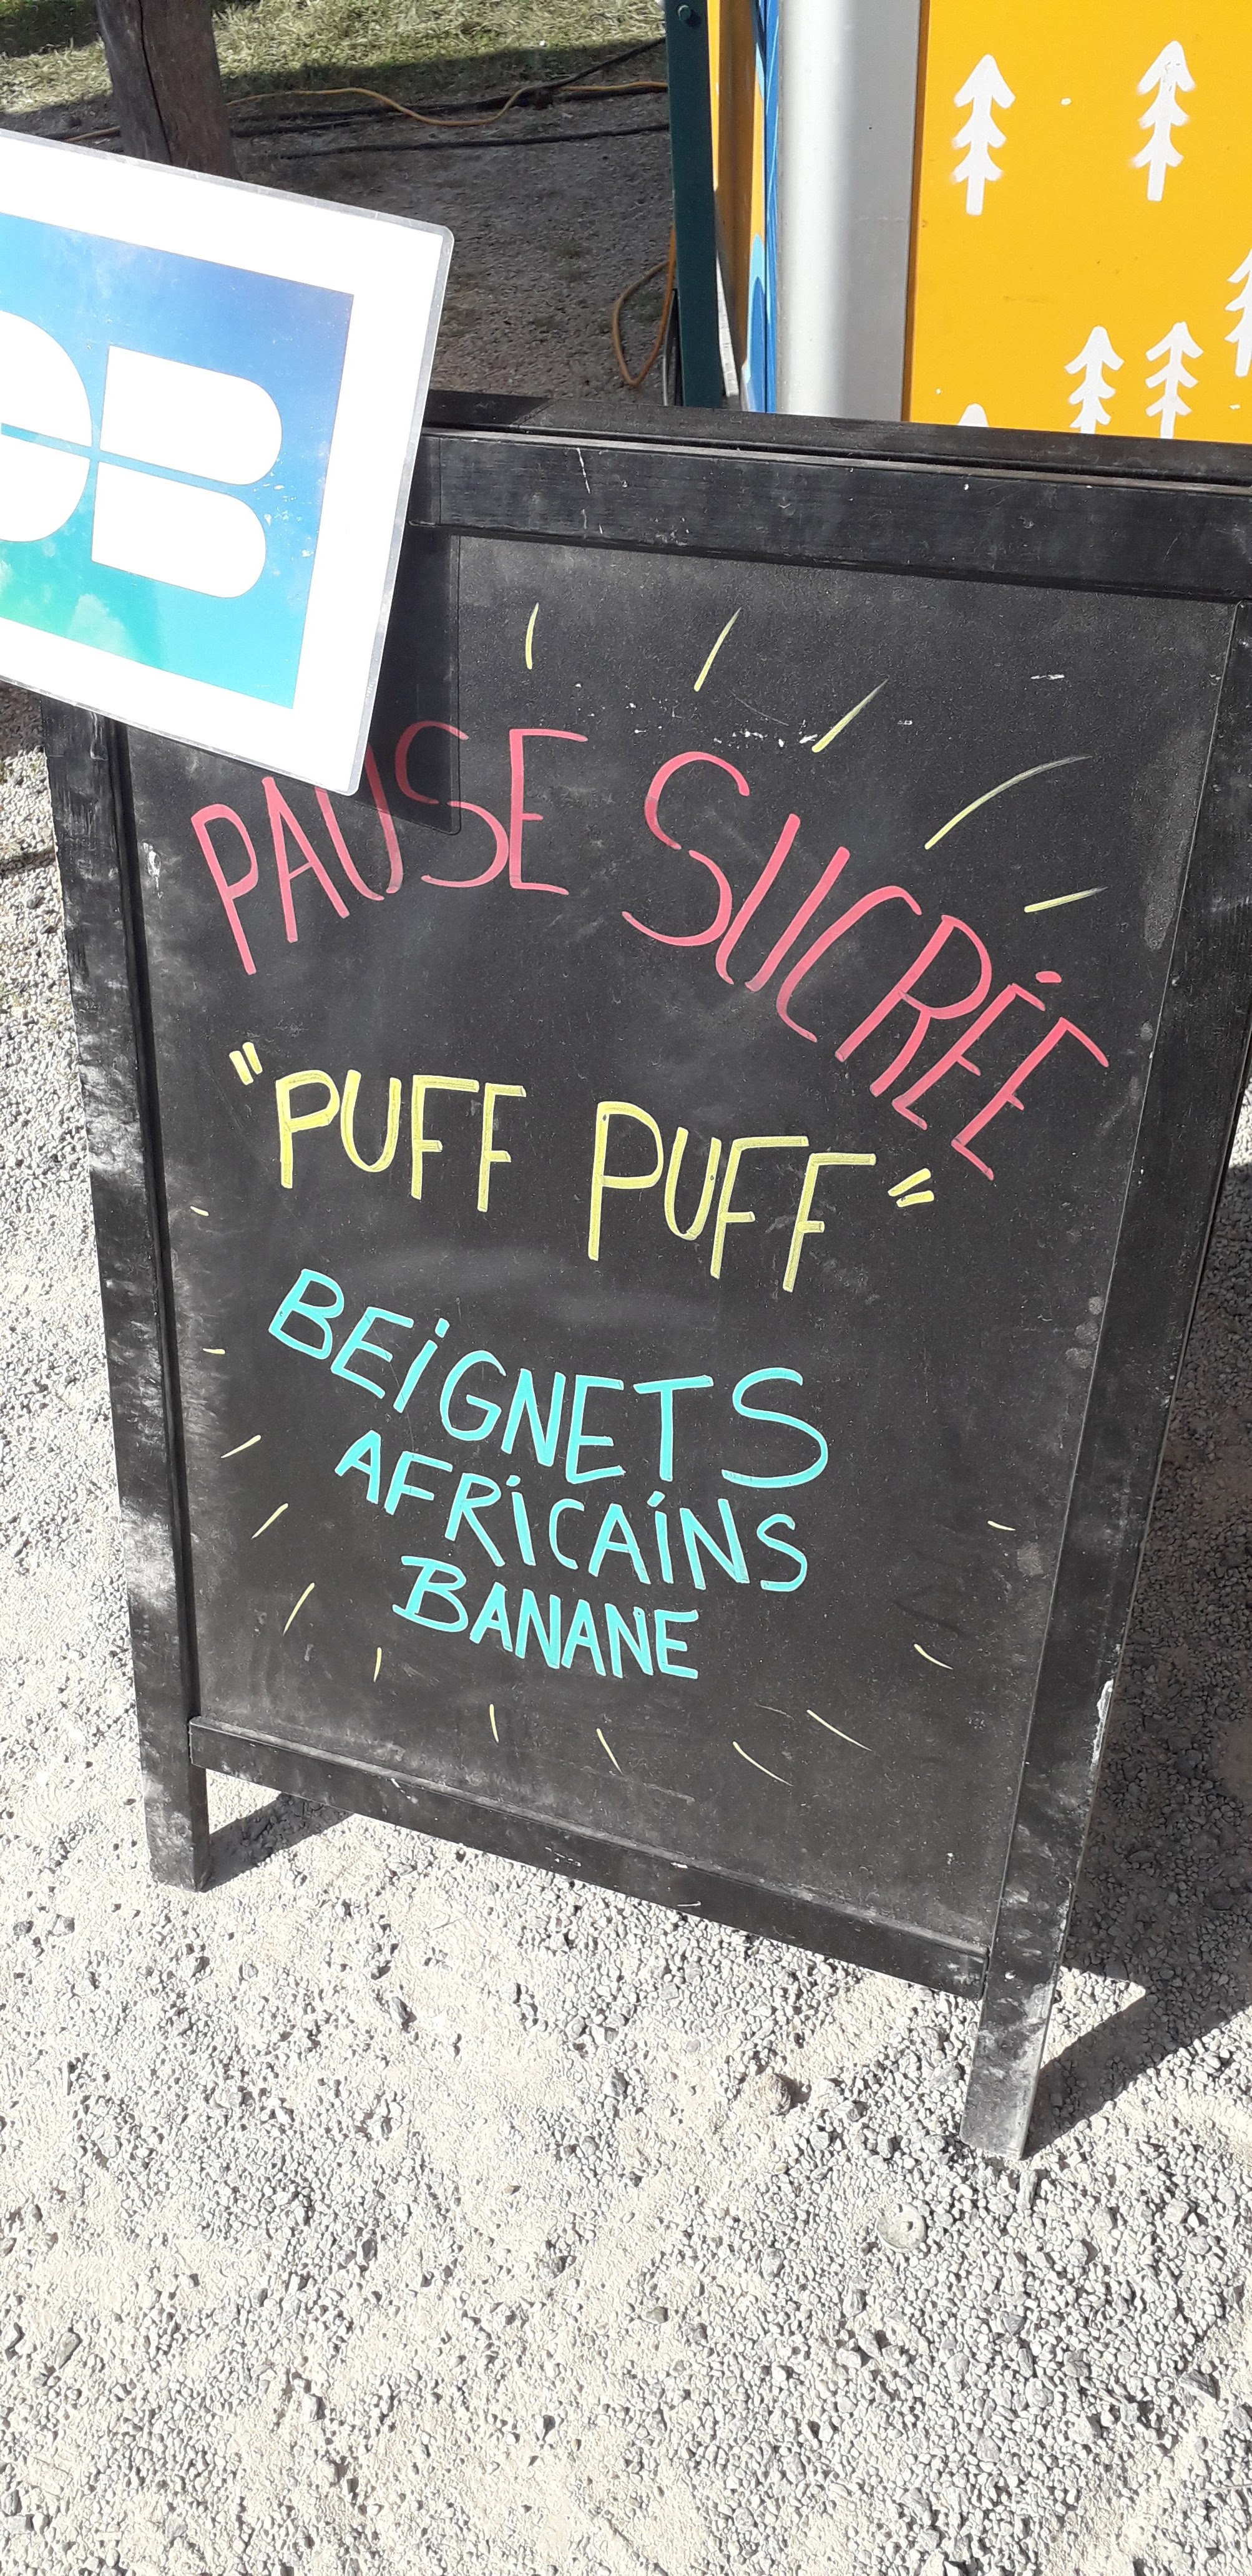 CB
PAUSE SUCRÉE
"PUFF PUFF"
BEIGNETS
AFRICAINS
BANANE